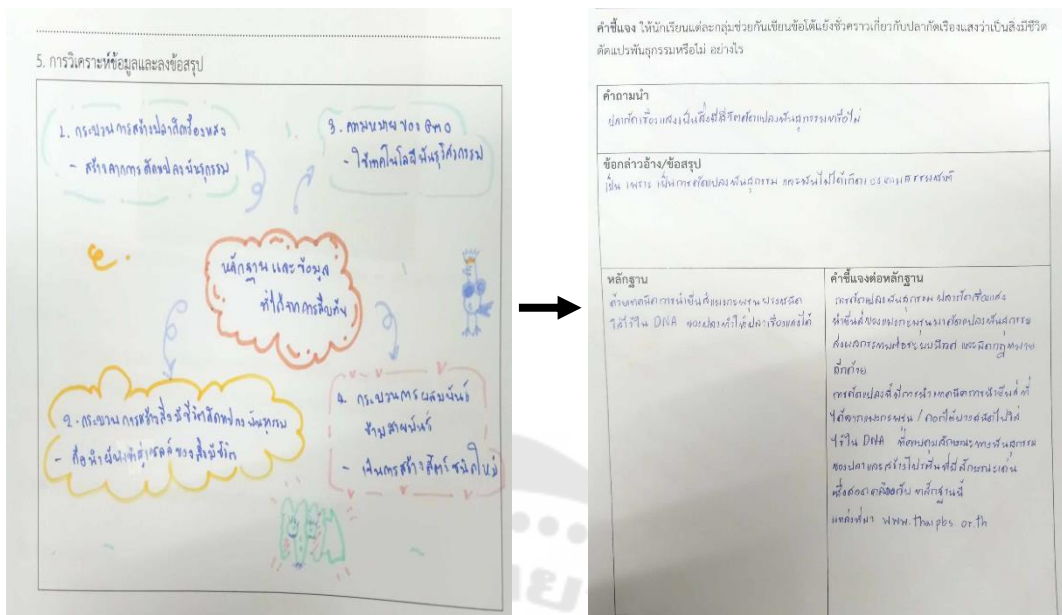 5. การวิเคราะห์ข้อมูลและลงข้อสรุป
1. กระบวนการสร้างปลากัดเรืองแสง
- สร้างจากการดัดแปลงพันธุกรรม
3. ความหมายของ GMO
- ใช้เทคโนโลยีพันธุวิศวกรรม
หลักฐานและข้อมูล
ที่ได้จากการสืบค้น
2. กระบวนการสร้างสิ่งมีชีวิตดัดแปลงพันธุกรรม
- คือนำยีนเข้าสู่เซลล์ของสิ่งมีชีวิต
4. กระบวนการผสมพันธุ์
ข้ามสายพันธุ์
- เป็นการสร้างสัตว์ชนิดใหม่
คำชี้แจง ให้นักเรียนแต่ละกลุ่มช่วยกันเขียนข้อโต้แย้งชั่วคราวเกี่ยวกับปลากัดเรืองแสงว่าเป็นสิ่งมีชีวิต
ดัดแปรพันธุกรรมหรือไม่ อย่างไร
คำถามนำ
ปลากัดเรืองแสงเป็นสิ่งมีชีวิตดัดแปลงพันธุกรรมหรือไม่
ข้อกล่าวอ้าง/ข้อสรุป
เป็น เพราะ เป็นการดัดแปลงพันธุกรรม และมันไม่ได้เกิดเองตามธรรมชาติ
หลักฐาน
ด้วยเทคนิคการนำยีนส์แมงกะพรุนบางชนิด
ใส่ไว้ใน DNA ของปลาทำให้ปลาเรืองแสงได้
คำชี้แจงต่อหลักฐาน
การดัดแปลงพันธุกรรม ปลากัดเรืองแสง
นำยีนส์ของแมงกะพรุนมาดัดแปลงพันธุกรรม
ส่งผลกระทบต่อระบบนิเวศ และผิดกฎหมาย
อีกด้วย
การดัดแปลงนี้มีการนำเทคนิคการนำยีนส์ที่
ได้จากแมงกะพรุน / ดอกไม้บางชนิดไปใส่
ไว้ใน DNA ที่ควบคุมลักษณะทางพันธุกรรม
ของปลาและสร้างโปรตีนที่มีลักษณะเด่น
ซึ่งสอดคล้องกับ หลักฐานนี้
แหล่งที่มา www.thaipbs.or.th